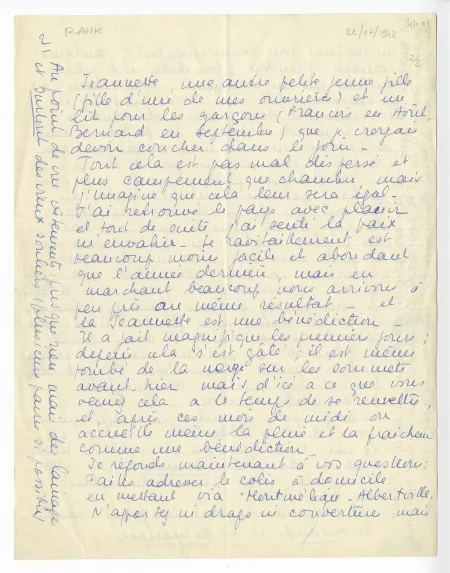 PLANK
22/07/1942
2/2
Jeannette, une autre petite jeune fille
(fille d'une de mes ouvrières) et un
lit pour les garçons (Francis en Août,
Bernard en septembre) que je croyais
devoir coucher dans le foin -
Tout cela est pas mal dispersé et
plus campement que chambre mais
j'imagine que cela leur sera égal -
J'ai retrouvé le pays avec plaisir
et tout de suite j'ai senti la paix
m'envahir - Le ravitaillement est
beaucoup moins facile et abondant
que l'année dernière, mais en
marchant beaucoup nous arrivons à
peu près au même résultat - et
la Jeannette est une bénédiction -
Il a fait magnifique les premiers jours ;
depuis cela s'est gâté ; il est même
tombé de la neige sur les sommets
avant-hier mais d'ici à ce que vous
veniez cela a le temps de se remettre,
et, après ces mois de midi on
accueille même la pluie et la fraîcheur
comme une bénédiction -
Je réponds maintenant à vos questions :
Faites adresser le colis à domicile
en mettant via - Montmélian - Albertville.
N'apportez ni draps ni couverture mais
Au point de vue vêtements presque rien mais des lainages
et surtout des vieux souliers (plusieurs paires si possible)